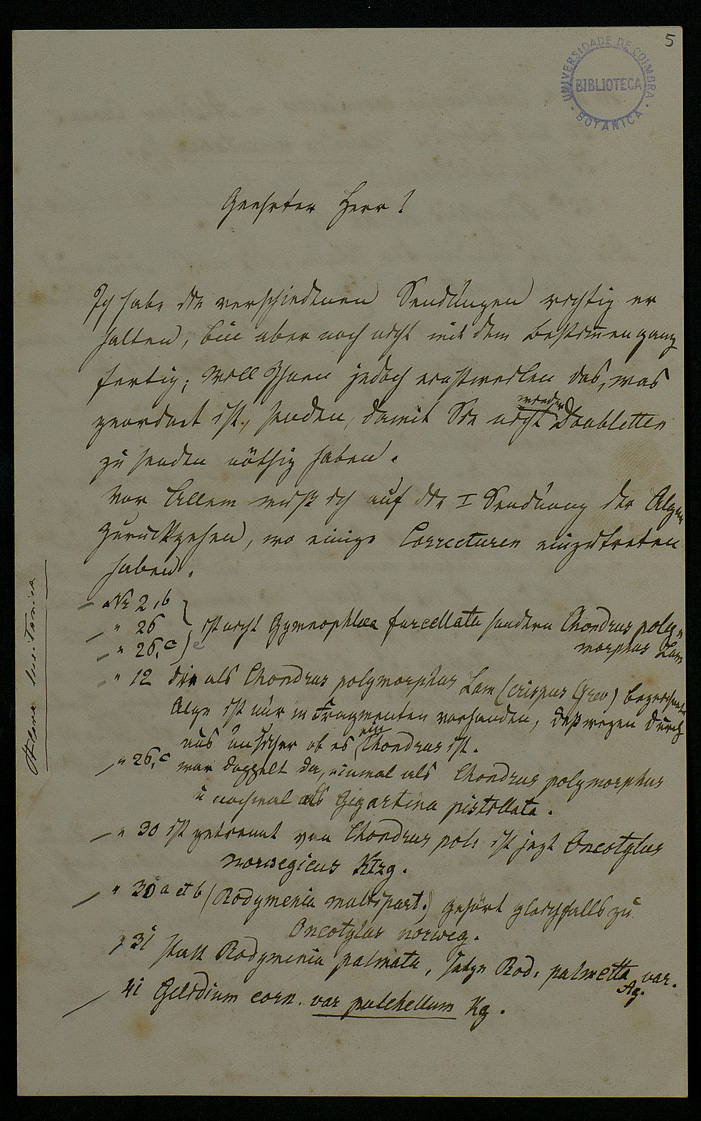 5
UNIVERSIDADE DE COIMBRA
BIBLIOTECA
BOTANICA
Geehrter Herr!
Ich habe die verschiedenen Sendungen richtig er
halten, bin aber noch nicht mit dem Bestimmen ganz
fertig; will Ihnen jedoch einstweilen das, was
geordnet ist, senden, damit Sie nicht wieder Doubletten
zu senden nöthig haben.
Vor Allem muß ich auf die I Sendung der Algen
zurückgehen, wo einige Correcturen einzutreten
haben.
Nr 2,b
" 26
" 26,c
ist nicht Gymnophlaea furcellata sondern Chondrus poly=
morphus Lam
" 12 die als Chondrus polymorphus Lam (crispus Grev) bezeichnete
Alge ist nur in Fragmenten vorhanden, deßwegen durch
aus unsicher ob es ein Chondrus ist.
" 26,c war doppelt da, einmal als Chondrus polymorphus
u nochmal als Gigartina pistillata.
" 30 ist getrennt von Chondrus pol: ist jetzt Oncotylus
norwegicus Ktzg.
" 30 a et b (Rodymenia multipart.) gehört gleichfalls zu
Oncotylus norweg.
" 31 statt Rodymenia palmata, setze Rod. palmetta var.
Ag.
41 Gelidium corn. var pulchellum Kg.
Algae lusitanica